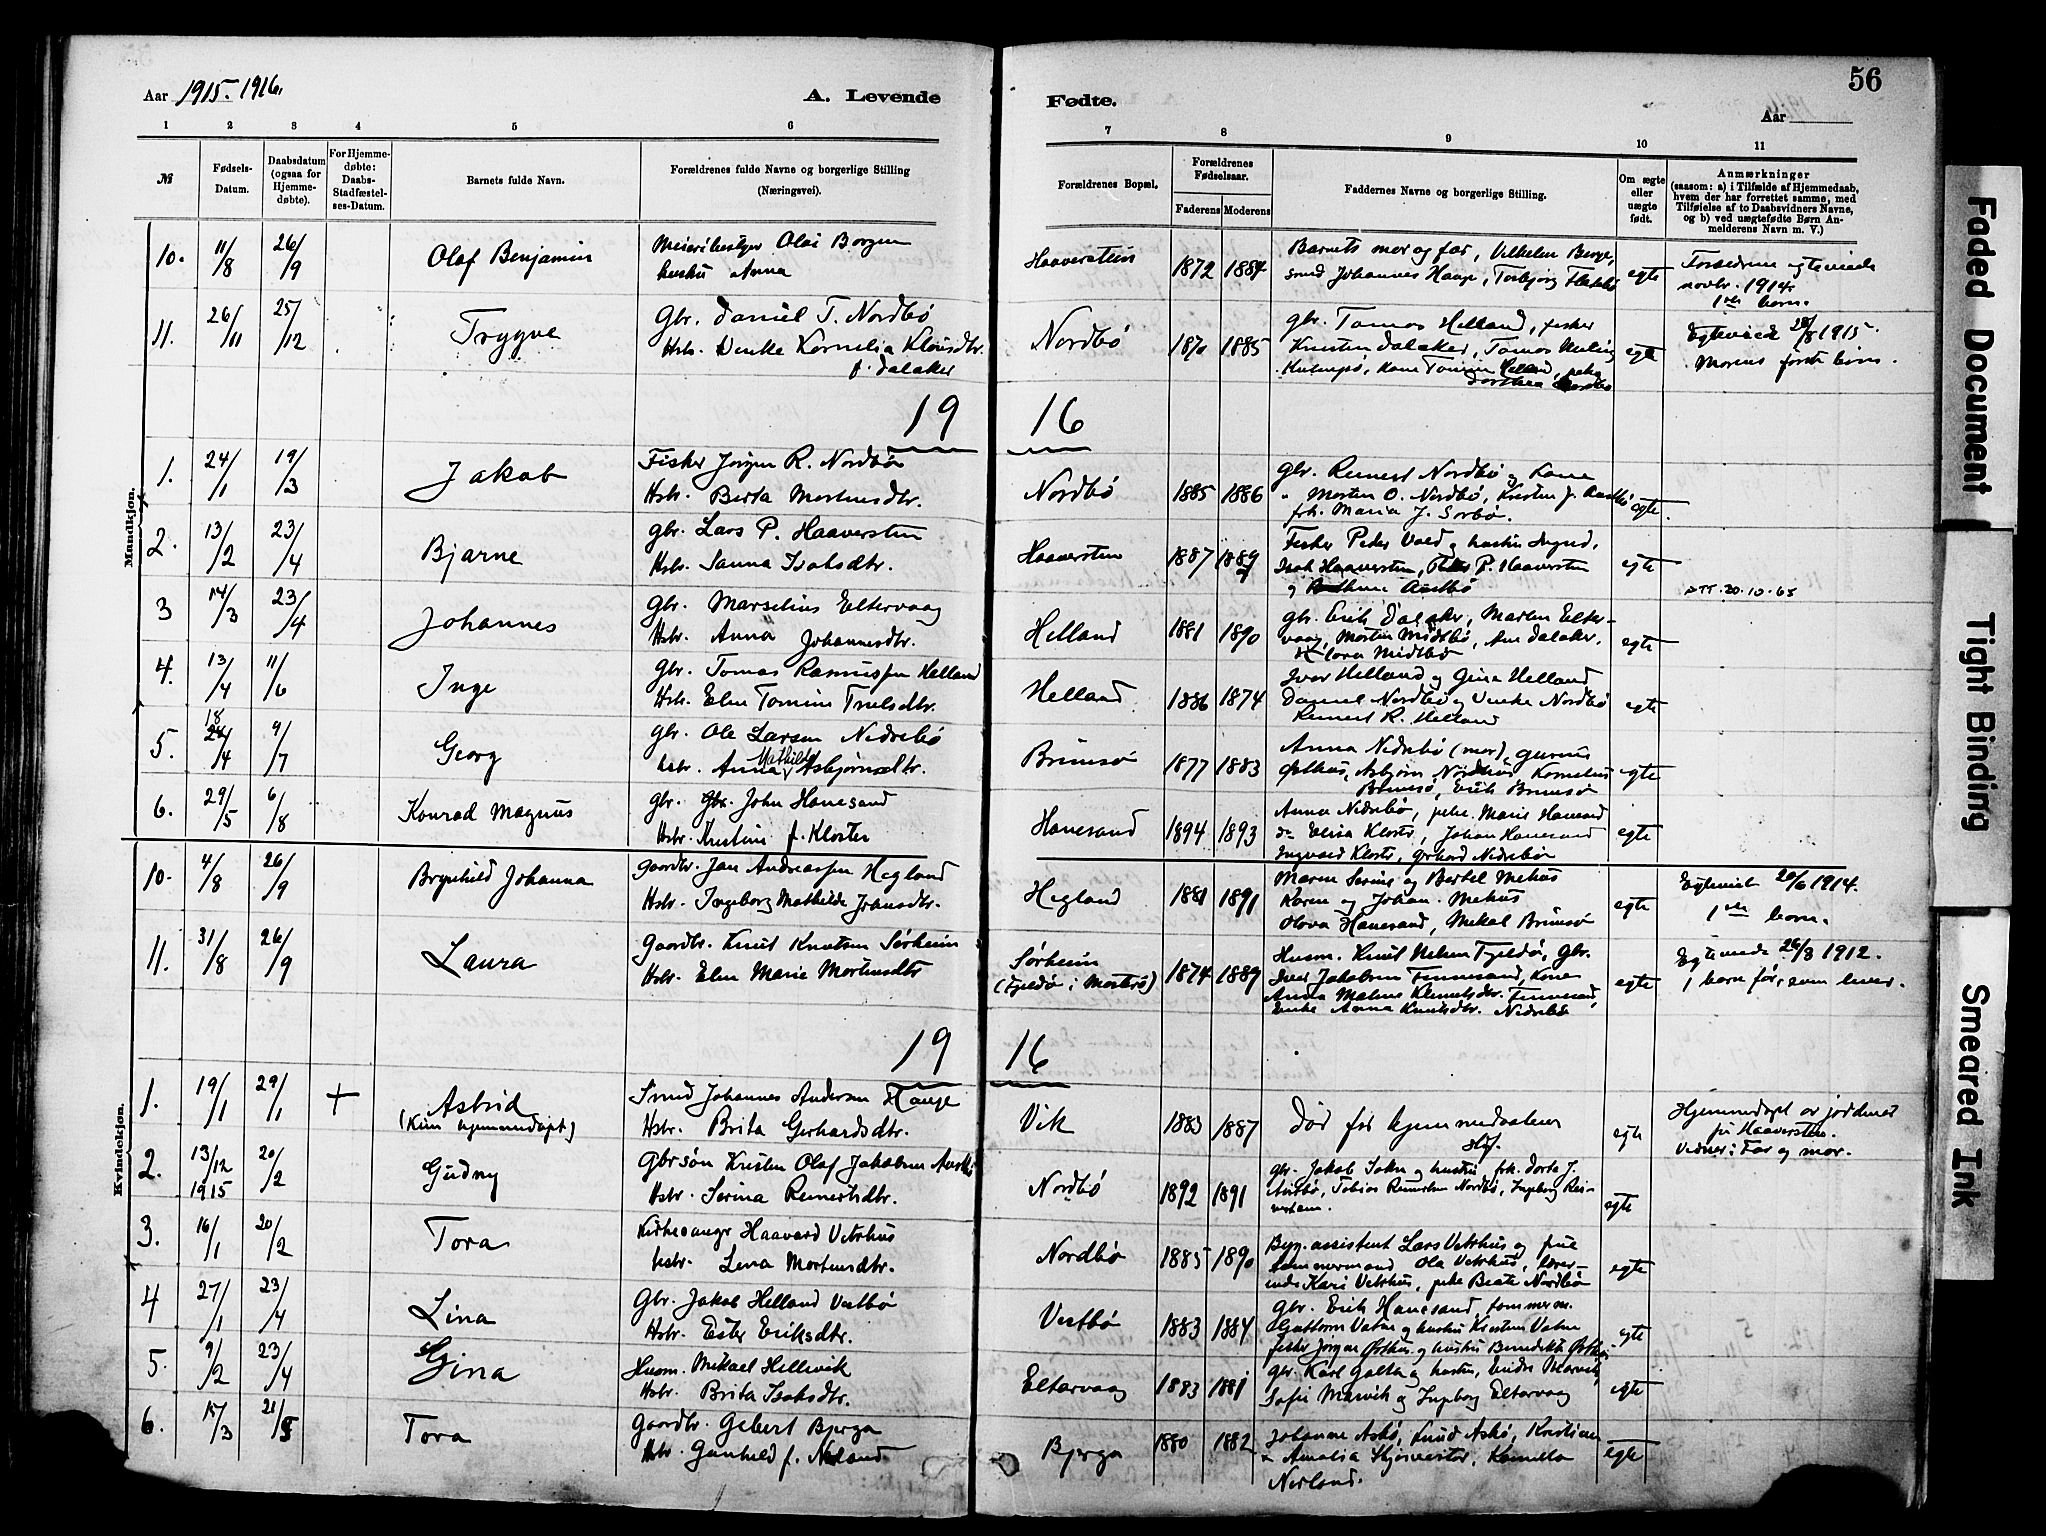 56
Aar 1915. 1916.
A. Levende
Fødte.
Aar
1 2 3 4 5 6
7 8 9 10 11
№
Fødsels-
Datum.
Daabsdatum
(ogsaa for
Hjemme-
døbte).
For Hjemme-
døbte:
Daabs-
Stadfæstel-
ses-Datum.
Barnets fulde Navn.
Forældrenes fulde Navne og borgerlige Stilling
(Næringsvei).
Forældrenes Bopæl.
Forældrenes
Fødselsaar.
Faderens Moderens
Faddernes Navne og borgerlige Stilling.
Om ægte
eller
uægte
født.
Anmærkninger
(saasom: a) i Tilfælde af Hjemmedaab,
hvem der har forrettet samme, med
Tilføielse af to Daabsvidners Navne,
og b) ved uægtefødte Børn An-
melderens Navn m. V.)
10. 11/8 26/9 Olaf Benjamin
Olai Borgen
hustru Anna
Haaverstein 1872 1884
Barnets mor og far, Vilhelm Berge,
smed Johannes Hauge, Torbjørg
egte
novbr. 1914.
1ste barn.
11. 26/11 25/12 Trygve
Gbr. Daniel T. Nordbø
Hstr. Venke Kornelia Klausdtr.
f. Dalaker
Nordbø 1870 1885
gbr. Tomas Helland, fisker
Kristen Dalaker, Tomas
kone Tomine Helland, pike
Dorthea Nordbø
egte
Egtevied 28/8 1915.
Morens første barn.
19 16
Mandkjøn.
1. 24/1 19/3 Jakob
Fisker Jørgen R. Nordbø
Hstr. Berta Mortensdtr.
Nordbø 1885 1886
gbr. Reinert Nordbø og kone
" Morten O. Nordbø, Kristen J. Austbø
frk. Maria J. Sørbø.
egte.
2. 13/2 23/4 Bjarne
gbr. Lars P. Haaverstein
Hstr. Sanna Isaksdtr.
Haaverstein 1887 1889
Fisker Peder Vold og hustru
Isak Haaverstein, Peder P. Haaverstein
og Austbø
egte
DTT. 20.10.65
3 14/3 23/4 Johannes
Gbr. Marselius Eltervaag
Hstr. Anna Johannesdtr.
Helland 1881 1890
gbr. Erik Dalaker, Marten Elter-
vaag, Morten Midtbø, Ane Dalaker,
Midtbø
egte
4. 13/4 11/6 Inge
Gbr. Tomas Rasmussen Helland
Hstr. Elen Tomine Truelsdtr.
Helland 1886 1874
Ivar Helland og Gina Helland
Daniel Nordbø og Venke Nordbø
Reinert R. Helland
egte
5. 18 24/4 9/7 Georg
gbr. Ole Larsen Nedrebø
hstr. Anna Mathilde Asbjørnsdtr.
Brimsø 1877 1883
Anna Nedrebø (mor), Gurine
Østhus, Asbjørn Nordhus, Kornelius
Brimsø, Erik Brimsø
egte
6. 29/5 6/8 Konrad Magnus
gbr. Gbr. John Hanesand
Hstr. Kristine f. Kloster
Hanesand 1894 1893
Anna Nedrebø, pike Marie Hanesand
do Elisa Kloster, Johan Hanesand
Ingvald Kloster, Gerhard Nedrebø
egte
10. 4/8 26/9 Brynhild Johanna
Gaardbr. Jan Andreassen Hegland
Hstr. Ingeborg Mathilde Johnsdtr.
Hegland 1881 1891
Maren Serine og Bertel Mehus
Karen og Johan Mehus
Olava Hanesand, Mikal Brimsø
egte
Egteviet 20/6 1914.
1ste barn.
11. 31/8 26/9 Laura
Gaardbr. Knut Knutsen Sørheim
Hstr. Elen Marie Mortensdtr
Sørheim
(Fjeldø i Mosterø) 1874 1889
Husm. Knut Nelsen Fjeldø, Gbr.
Iver Jakobsen Finnesand, Kone
Anna Malene Klemetsdtr. Finnesand,
Enke Anna Knutsdtr. Nedrebø
egte
Egteviede 26/3 1912.
1 barn før, som lever.
19 16
Kvindekjøn.
1. 19/1 29/1 + Astrid
(Kun hjemmedøpt)
Smed Johannes Andersen Hauge
Hstr. Brita Gerhardsdtr.
Vik 1883 1887
Død før hjemmedaaben
stf.
egte
Hjemmedøpt av jordmor
på Haaverstein.
Vidner: Far og mor.
2. 13/12 1915 20/2 Gudny
Gbrsøn Kristen Olaf Jakobsen Austbø
Hstr. Serina Reinertsdtr.
Nordbø 1892 1891
gbr. Jakob Sokn og hustru, frk. Dorte J.
Austbø, Tobias Reinertsen Nordbø, Ingeborg Rei-
nertsen.
egte
3. 16/1 20/2 Tora
Kirkesanger Haavard Vetrhus
hstr. Lena Mortensdtr.
Nordbø 1885 1890
Byg.assistent Lars Vetrhus og frue
tømmermand Ola Vetrhus, lærer-
inde Kari Vetrhus, pike Beate Nordbø
egte
4 27/1 23/4 Lina
Gbr. Jakob Helland Vestbø
Hstr. Ester Eriksdtr.
Vestbø 1883 1884
Gbr. Erik Hanesand, tømmerm.
Guttorm Vatne og hustru Kirsten Vatne
fisker Jørgen Østhus og hustru Benedikte Østhus
egte
5. 9/2 23/4 Gina
Husm. Mikael Hellevik
Hstr. Brita Isaksdtr.
Eltarvaag 1883 1881
gbr. Karl Galta og hustru, Endre Marvik,
Sofie Marvik og Ingeborg Eltarvaag
egte
6. 15/3 21/5 Tora
Gaardbr. Gebert Bjerga
Hstr. Gunhild f. Nerland
Bjerga 1880 1882
Johanne Askø, Knud Askø, Kristian
& Amalia Skjørvestø, Kamilla
Nerland.
egte
Faded Document
Tight Binding
Smeared Ink